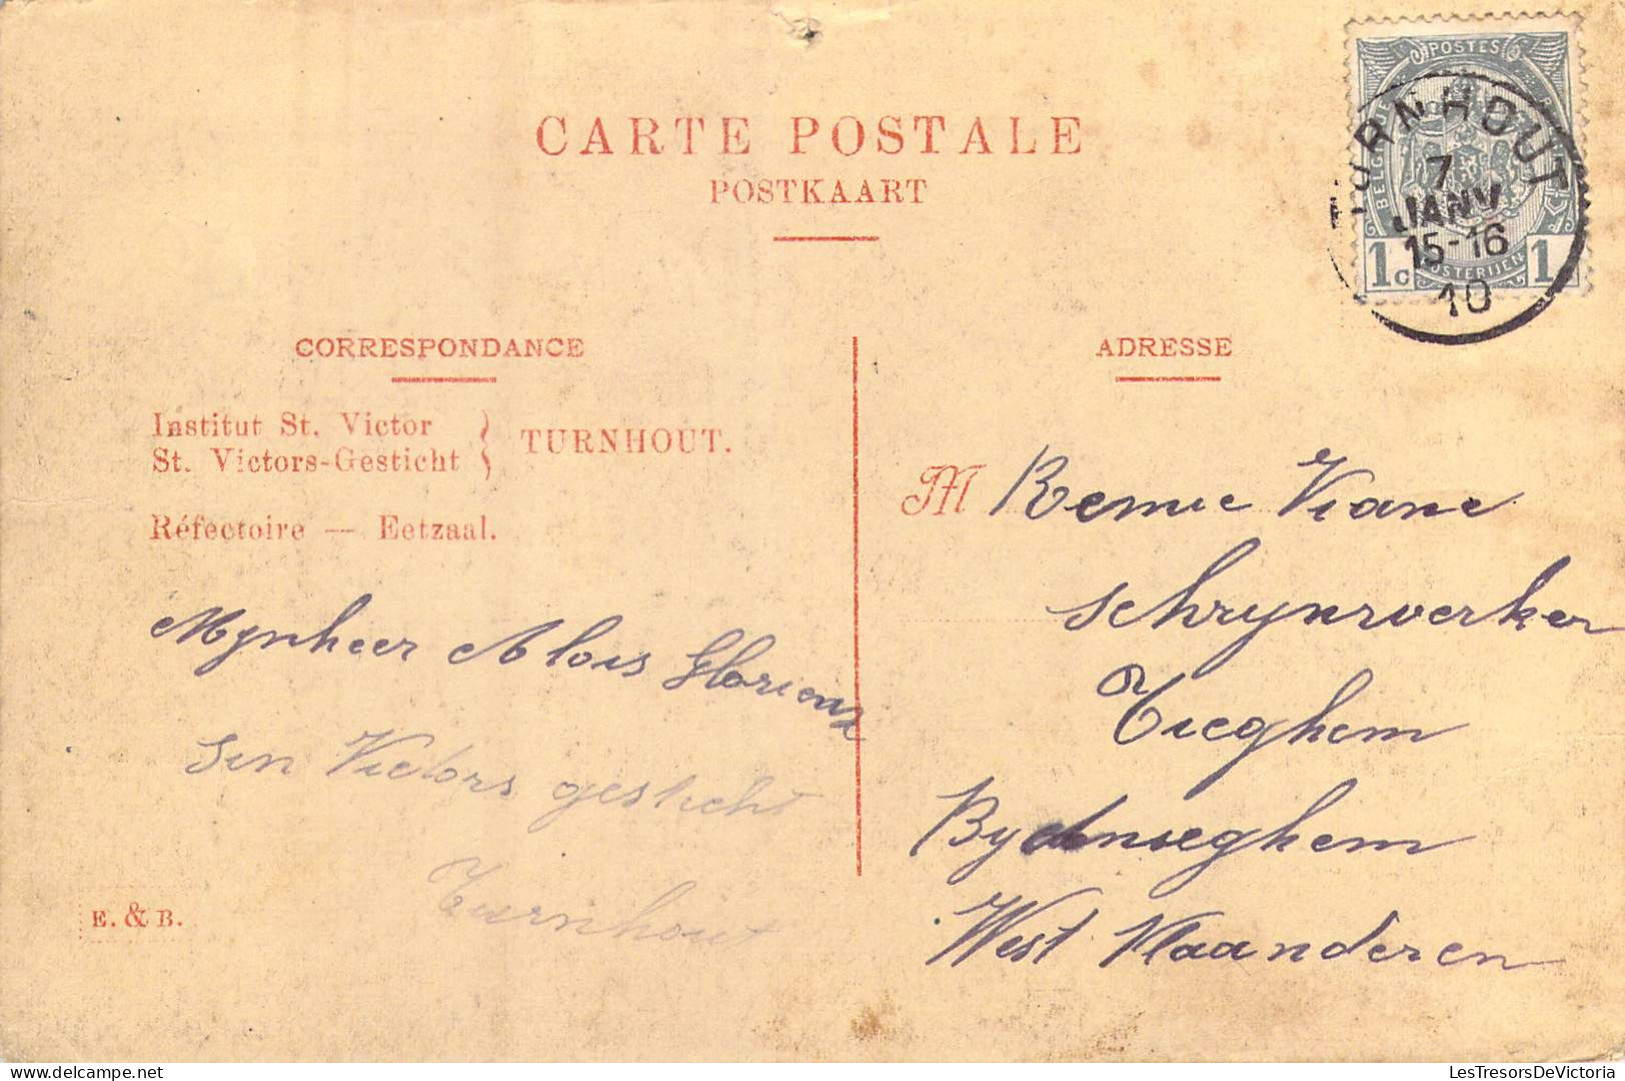 CARTE POSTALE
POSTKAART
POSTES
BELGIQUE
POSTERIJEN
1c
1
TURNHOUT
7
JANV
15-16
10
CORRESPONDANCE
Institut St. Victor
St. Victors-Gesticht
TURNHOUT.
Réfectoire — Eetzaal.
Mynheer Alois Glorieux
Sin Victors gesticht
Turnhout
E. & B.
ADRESSE
M Remie Viane
Schrynwerker
Tieghem
By Anseghem
West Vlaanderen
LesTresorsDeVictoria